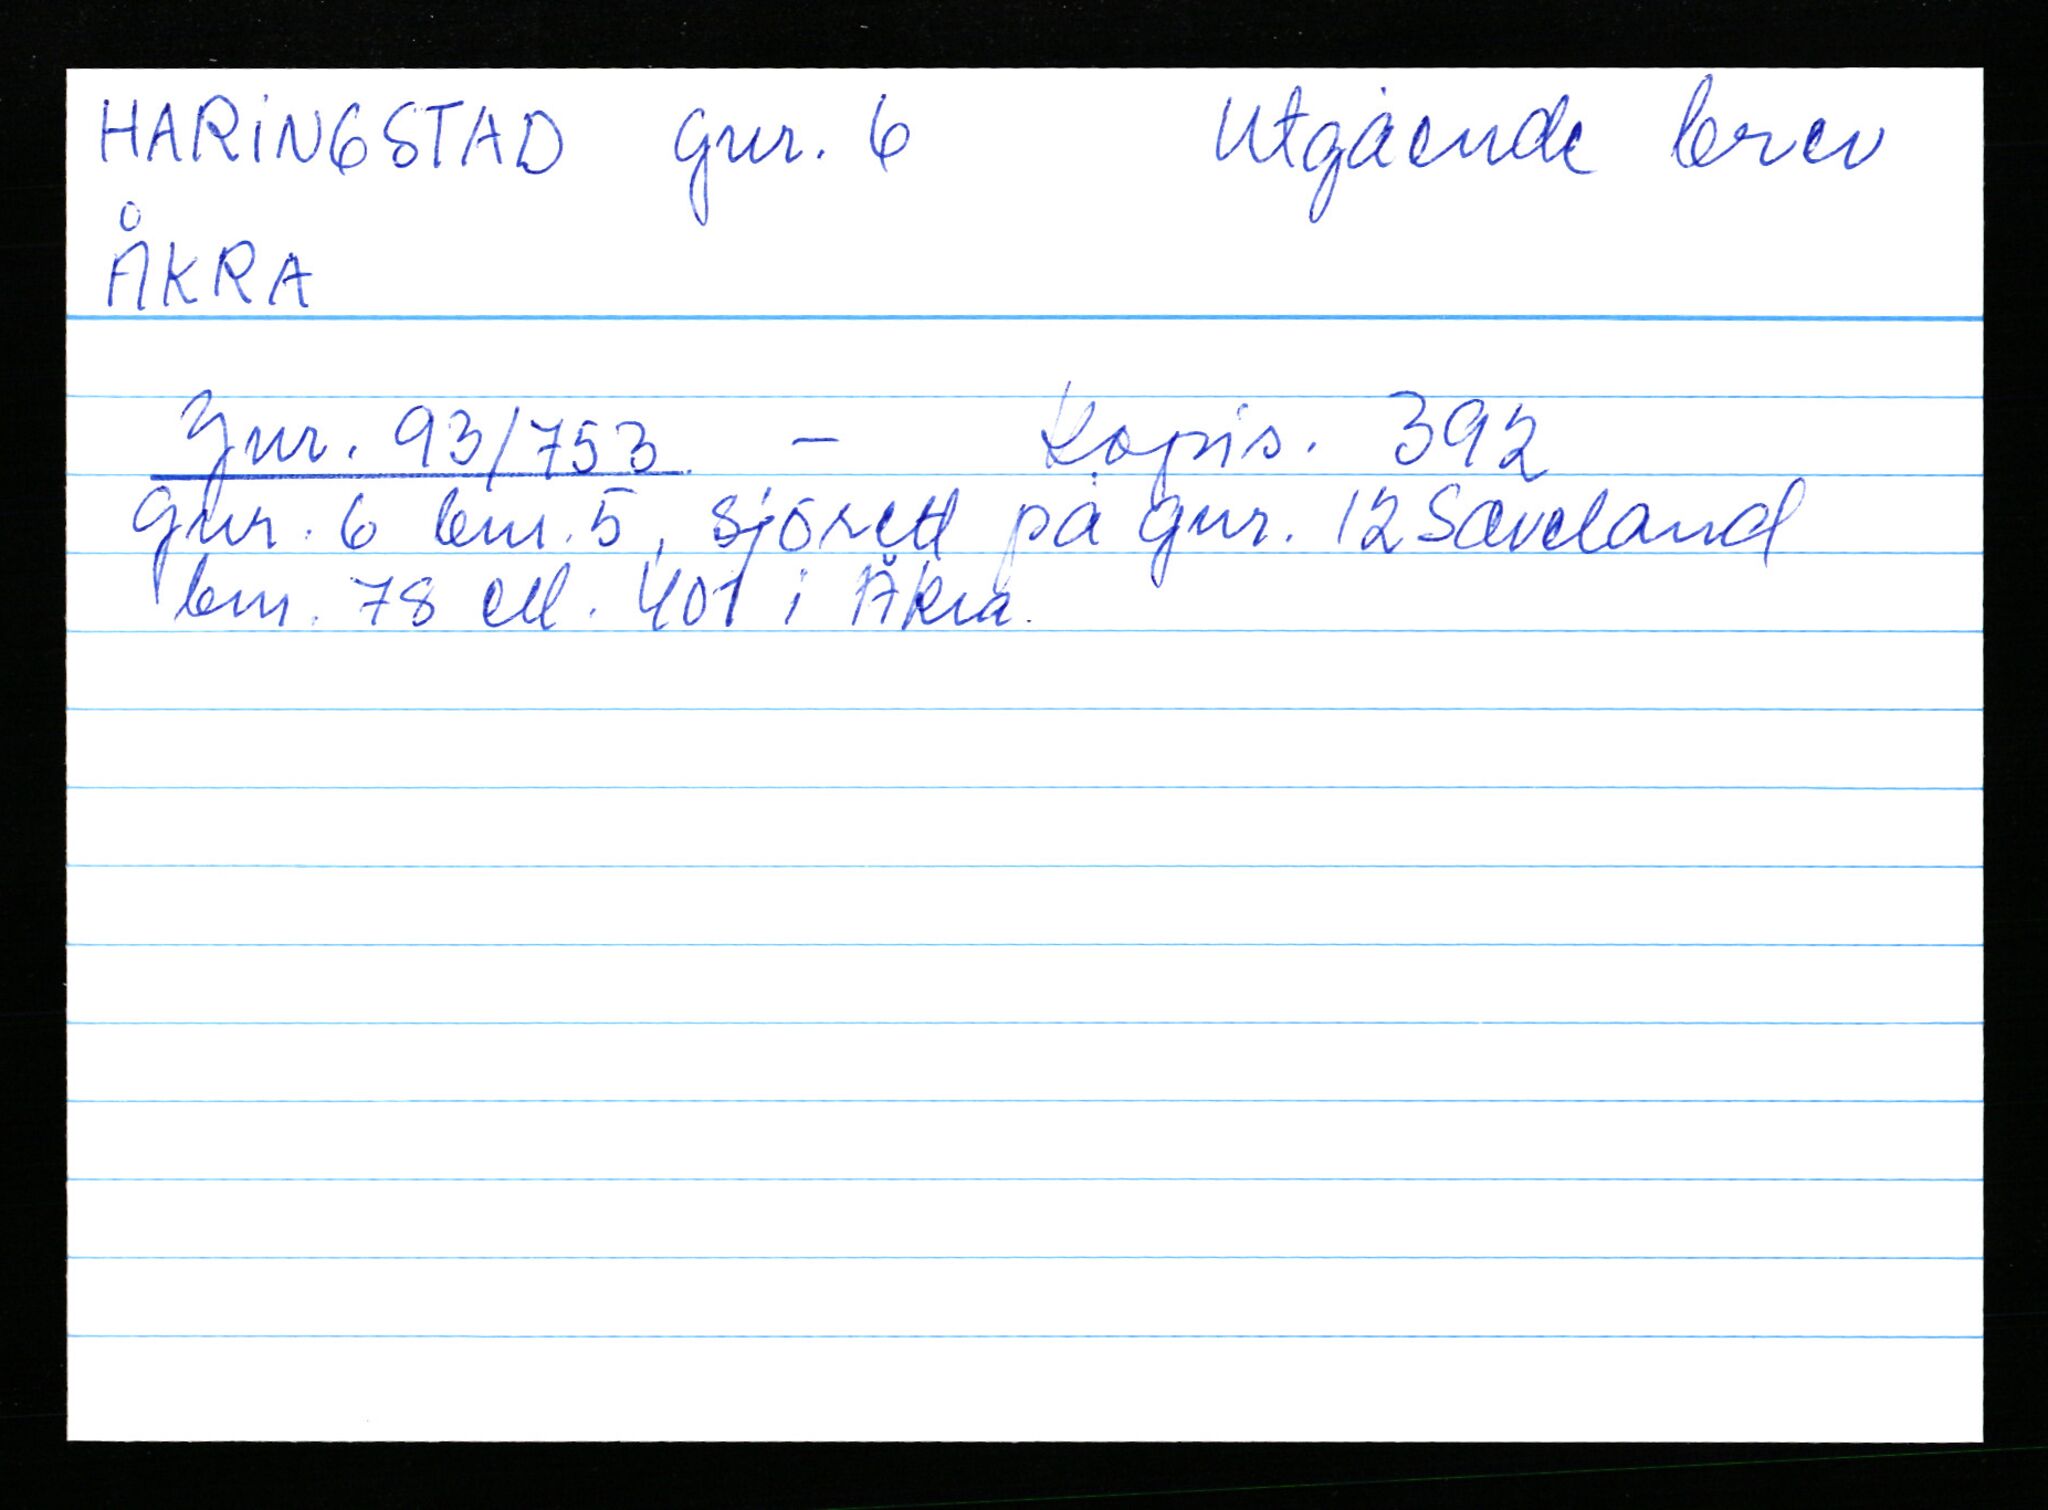 HARINGSTAD gnr. 6 Utgående brev
ÅKRA
Jnr. 93/753 - Kopis. 392
gnr. 6 bnr. 5, sjörett på gnr. 12 Sæveland
bnr. 78 ell. 401 i Åkra.